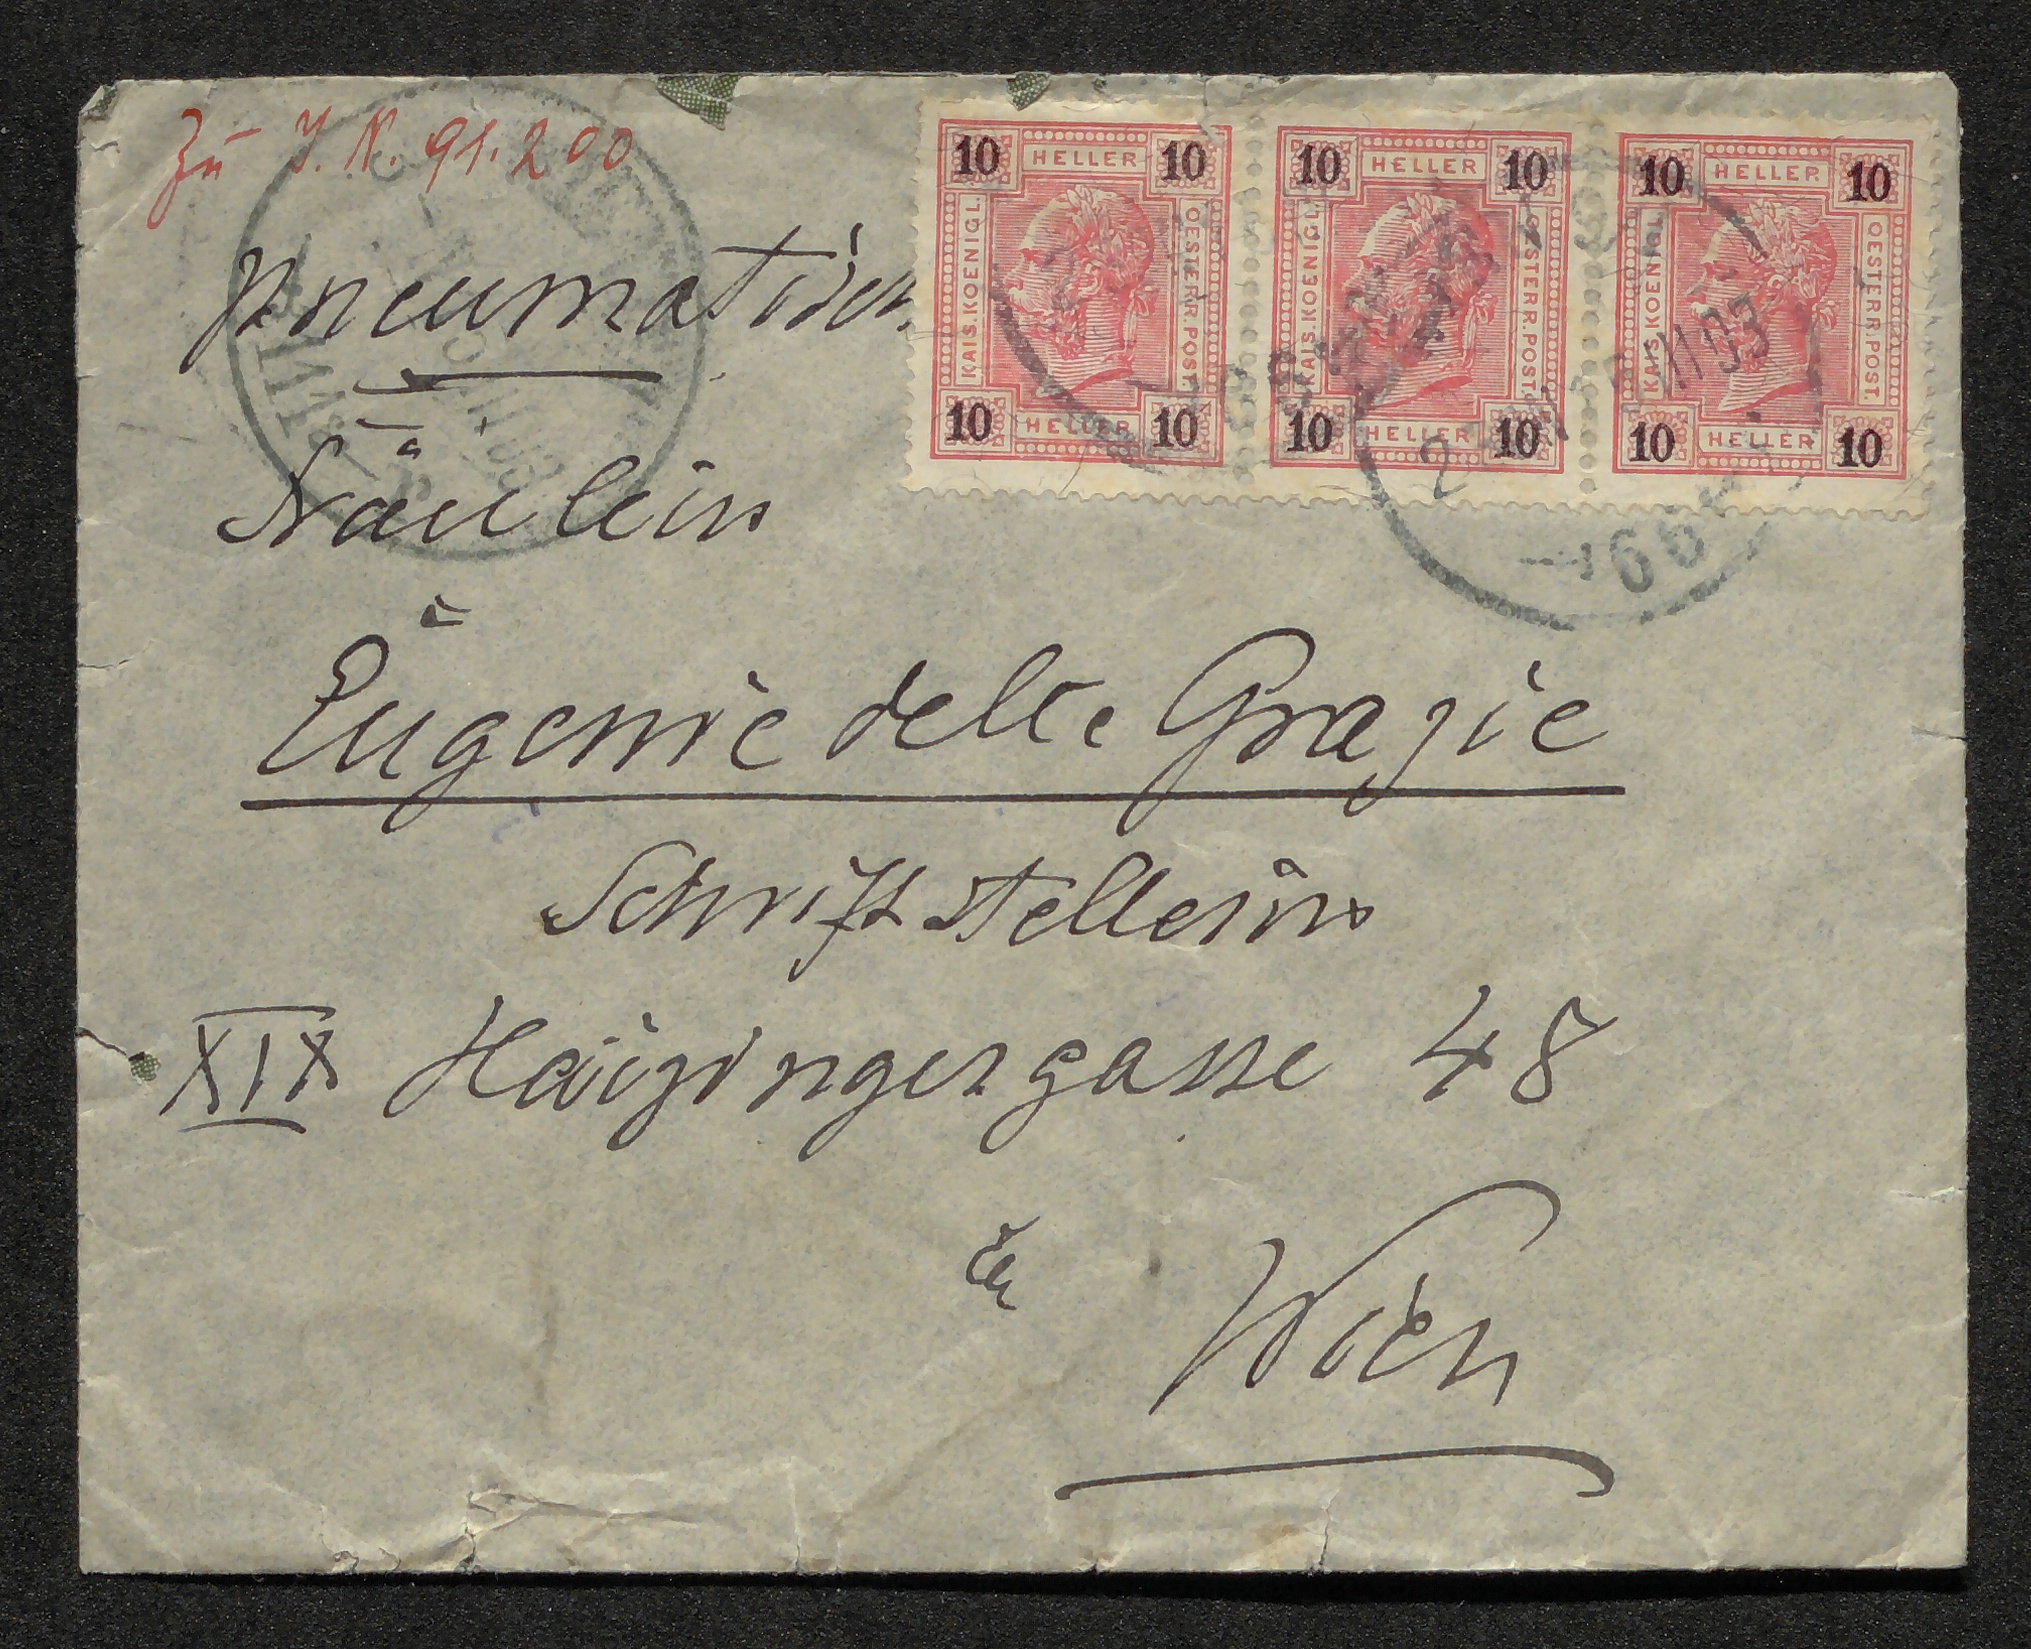 Zu I.N. 91.200
pneumatisch
Fräulein
Eugenie delle Grazie
Schriftstellerin
XIX Haizingergasse 48
in Wien
10 HELLER 10
KAIS. KOENIGL. OESTERR. POST.
10 HELLER 10
10 HELLER 10
KAIS. KOENIGL. OESTERR. POST.
10 HELLER 10
10 HELLER 10
KAIS. KOENIGL. OESTERR. POST.
10 HELLER 10